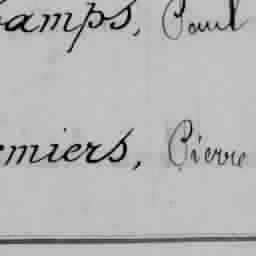 amps, Paul
miers, Pierre